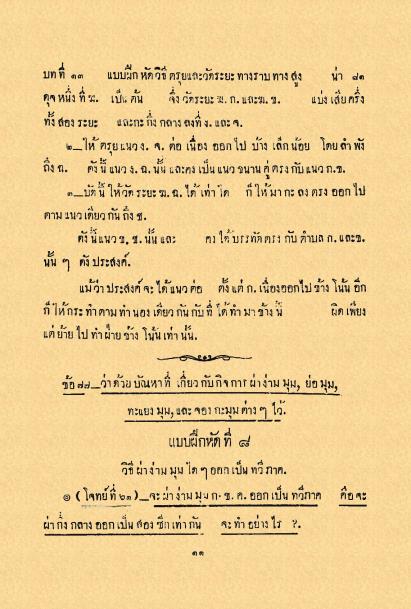 บทที่ ๑๓ แบบฝึกหัดวิธีตรุยและวัดระยะทางราบทางสูง น่า ๘๑
ดุจหนึ่งที่ ฆ. เปนต้น จึ่งวัดระยะ ฆ. ก. และฆ. ข. แบ่งเสียครึ่ง
ทั้งสองระยะ และกะกึ่งกลางลงที่ ง. และ จ.
๒_ให้ตรุยแนว ง. จ. ต่อเนื่องออกไปบ้างเล็กน้อย โดยลำพัง
ถึง ฉ. ดังนี้แนว ง. ฉ. นั้นและคงเป็นแนวขนานคู่ตรงกับแนว ก.ข.
๓_บัดนี้ให้วัดระยะ ฆ. ฉ. ได้เท่าใด ก็ให้มากะลงตรงออกไป
ตามแนวเดียวกันถึง ช.
ดังนี้แนว ข. ช. นั้นและ คงได้บรรทัดตรงกับตำบล ก. และข.
นั้น ๆ ดังประสงค์.
แม้ว่าประสงค์จะได้แนวต่อ ตั้งแต่ ก. เนื่องออกไปข้างโน้นอีก
ก็ให้กระทำตามทำนองเดียวกันกับที่ได้ทำมาข้างนี้ ผิดเพียง
แต่ย้ายไปทำฝ่ายข้างโน้นเท่านั้น.
ข้อ ๗๗_ว่าด้วยปัณหาที่เกี่ยวกับกิจการผ่าง่ามมุม, ย่อมุม,
ทะแยงมุม, และจองกะมุมต่าง ๆ ไว้.
แบบฝึกหัดที่ ๘
วิธีผ่าง่ามมุมใด ๆ ออกเป็นทวีภาค.
๑ (โจทย์ที่ ๒๑)_จะผ่าง่ามมุม ก. ข. ค. ออกเป็นทวีภาค คือจะ
ผ่ากึ่งกลางออกเป็นสองซีกเท่ากัน จะทำอย่างไร ?.
๑๑